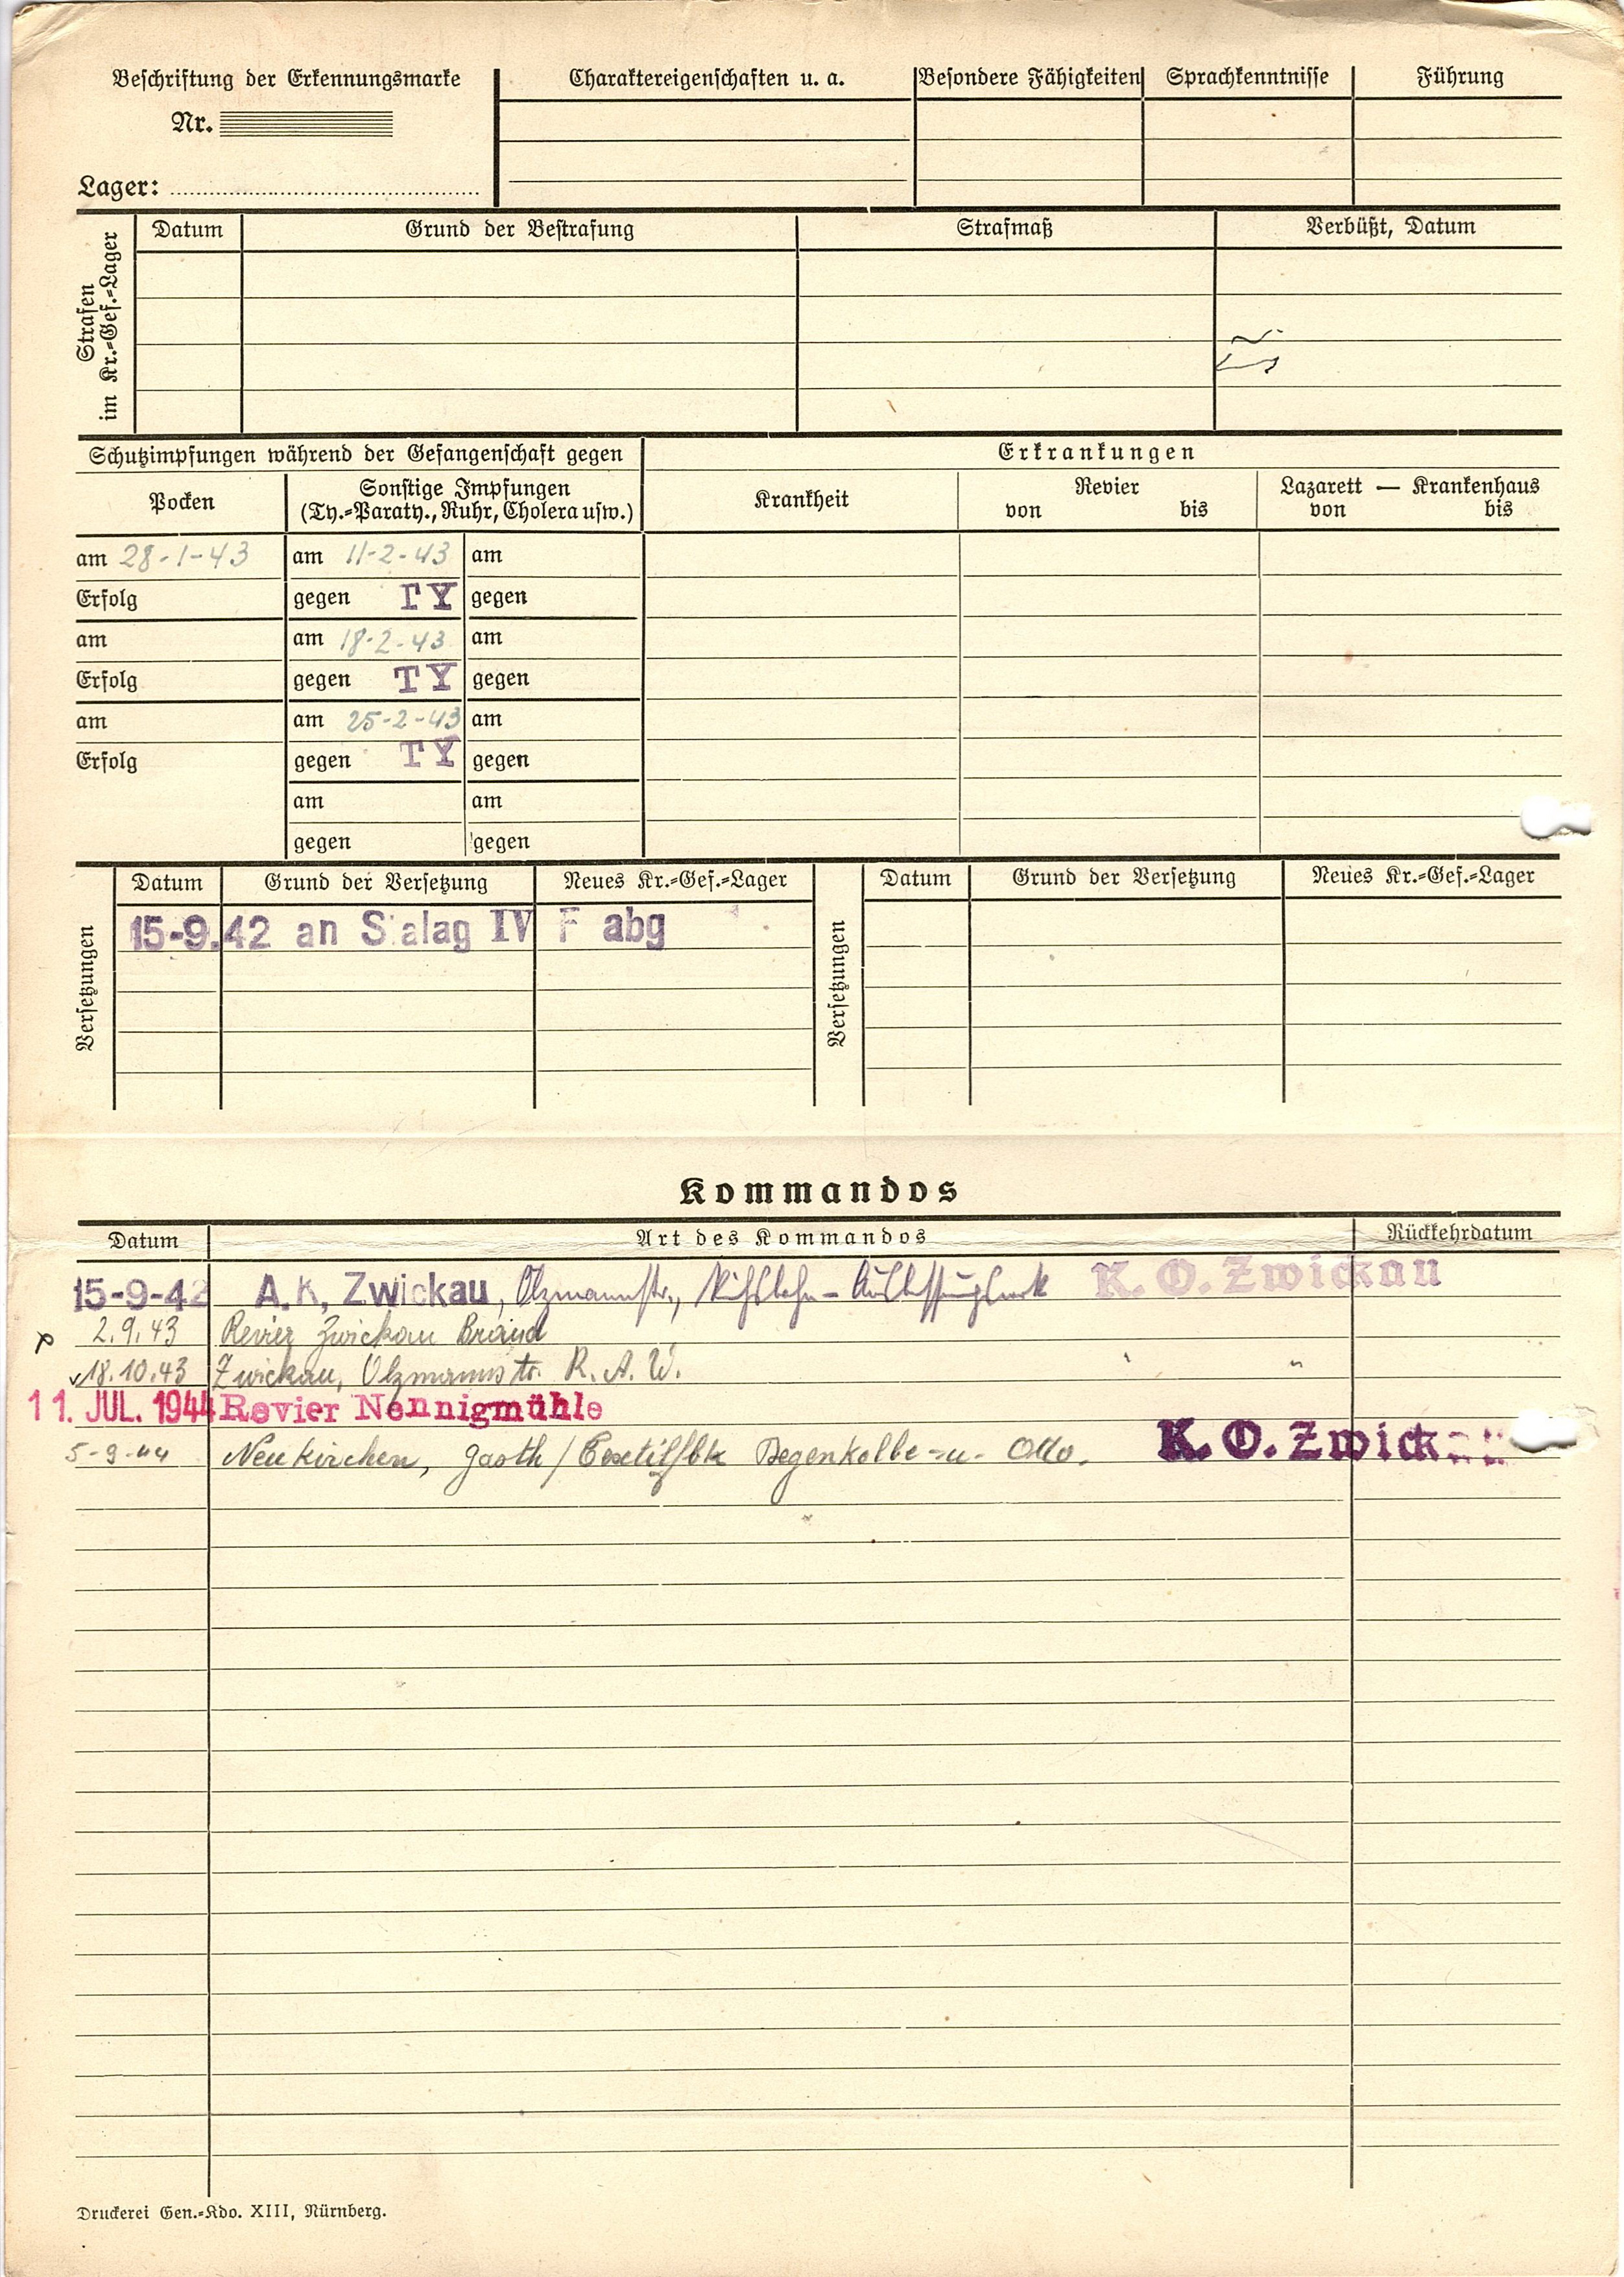 Beschriftung der Erkennungsmarke
Nr.
Lager:
Charaktereigenschaften u. a.
Besondere Fähigkeiten
Sprachkenntnisse
Führung
Strafen im Kr.-Gef.-Lager
Datum Grund der Bestrafung Strafmaß Verbüßt, Datum
Schutzimpfungen während der Gefangenschaft gegen
Erkrankungen
Pocken
Sonstige Impfungen
(Ty.-Paraty., Ruhr, Cholera usw.)
Krankheit
Revier
von bis
Lazarett — Krankenhaus
von bis
am 28-1-43 am 11-2-43 am
Erfolg gegen TY gegen
am am 18-2-43 am
Erfolg gegen TY gegen
am am 25-2-43 am
Erfolg gegen TY gegen
am am
gegen gegen
Versetzungen
Datum Grund der Versetzung Neues Kr.-Gef.-Lager
15-9.42 an Stalag IV F abg
Versetzungen
Datum Grund der Versetzung Neues Kr.-Gef.-Lager
Kommandos
Datum Art des Kommandos Rückkehrdatum
15-9-42 A.K, Zwickau, Olzmannstr., K. O. Zwickau
2.9.43 Revier Zwickau Brand
18.10.43 Zwickau, Olzmannstr. R. A. W. " "
11. JUL. 1944 Revier Nennigmühle
5-9-44 Neukirchen, Gasth / Textilfbk Degenkolbe -u- Otto. K. O. Zwickau
Druckerei Gen.-Kdo. XIII, Nürnberg.